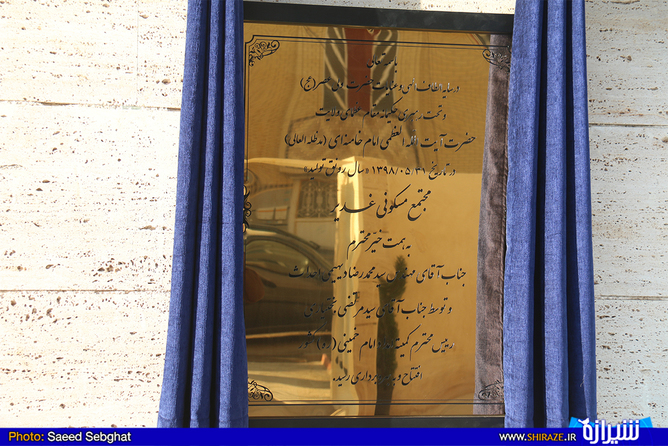 باسمه تعالی
در سایه الطاف الهی و عنایات حضرت ولی عصر (عج)
و تحت رهبری حکیمانه مقام عظمای ولایت
حضرت آیت الله العظمی امام خامنه ای (مدظله العالی)
در تاریخ ۱۳۹۸/۰۵/۳۱ «سال رونق تولید»
مجتمع مسکونی غدیر
به همت خیّر محترم
جناب آقای مهندس سید محمدرضا دیهیمی احداث
و توسط جناب آقای سید مرتضی بختیاری
رییس محترم کمیته امداد امام خمینی (ره) کشور
افتتاح و بهره برداری رسید.
Photo: Saeed Sebghat
WWW.SHIRAZE.IR
شیرازه